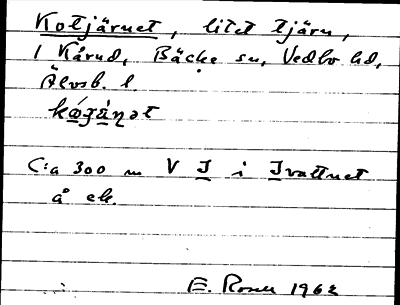 Kotjärnet, litet tjärn,
i Kårud, Bäcke sn, Vedbo hd,
Älvsb. l
C:a 300 m V I i Ivattnet
å ek.
E. Rosell 1962